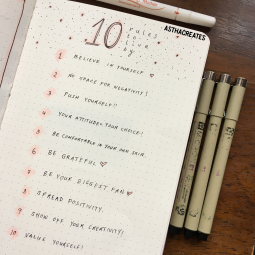 10 rules
to
live
by
ASTHACREATES
1 BELIEVE IN YOURSELF
2 NO SPACE FOR NEGATIVITY!
3 PUSH YOURSELF!!
4 YOUR ATTITUDE, YOUR CHOICE!
5 BE COMFORTABLE IN YOUR OWN SKIN.
6 BE GRATEFUL
7 BE YOUR BIGGEST FAN
8 SPREAD POSITIVITY.
9 SHOW OFF YOUR CREATIVITY!
10 VALUE YOURSELF!